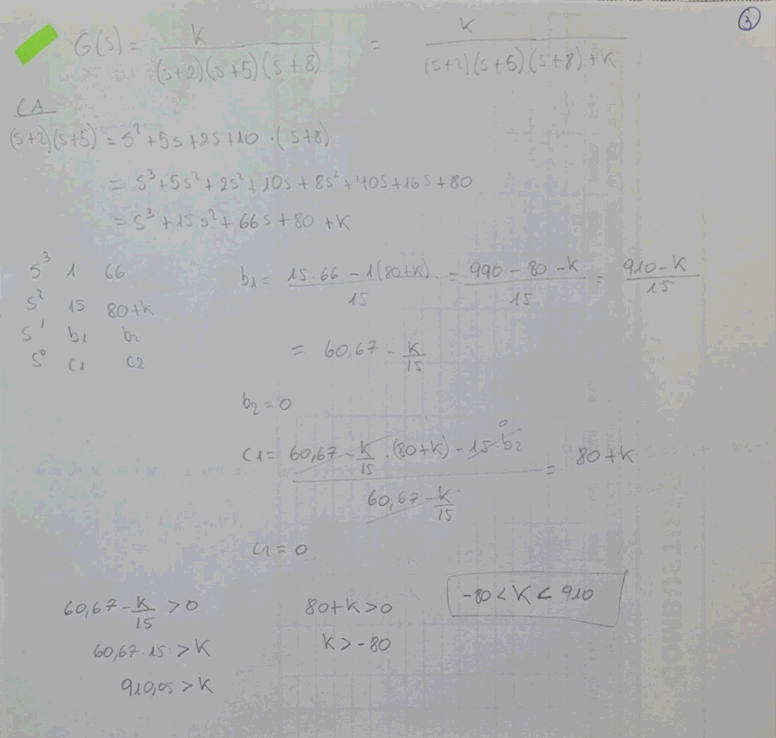 3
G(s) = K / (s+2)(s+5)(s+8) = K / (s+2)(s+5)(s+8)+K
CA
(s+2)(s+5) = s² + 5s + 2s + 10 · (s+8)
= s³ + 5s² + 2s² + 10s + 8s² + 40s + 16s + 80
= s³ + 15s² + 66s + 80 + K
s³ 1 66
s² 15 80+K
s¹ b1 b2
s⁰ c1 c2
b1 = 15·66 − 1(80+K) / 15 = 990 − 80 − K / 15 = 910 − K / 15
= 60,67 − K/15
b2 = 0
c1 = 60,67 − K/15 · (80+K) − 15·b2 0 / 60,67 − K/15 = 80+K
c1 = 0
60,67 − K/15 > 0
60,67·15 > K
910,05 > K
80+K > 0
K > −80
−80 < K < 910